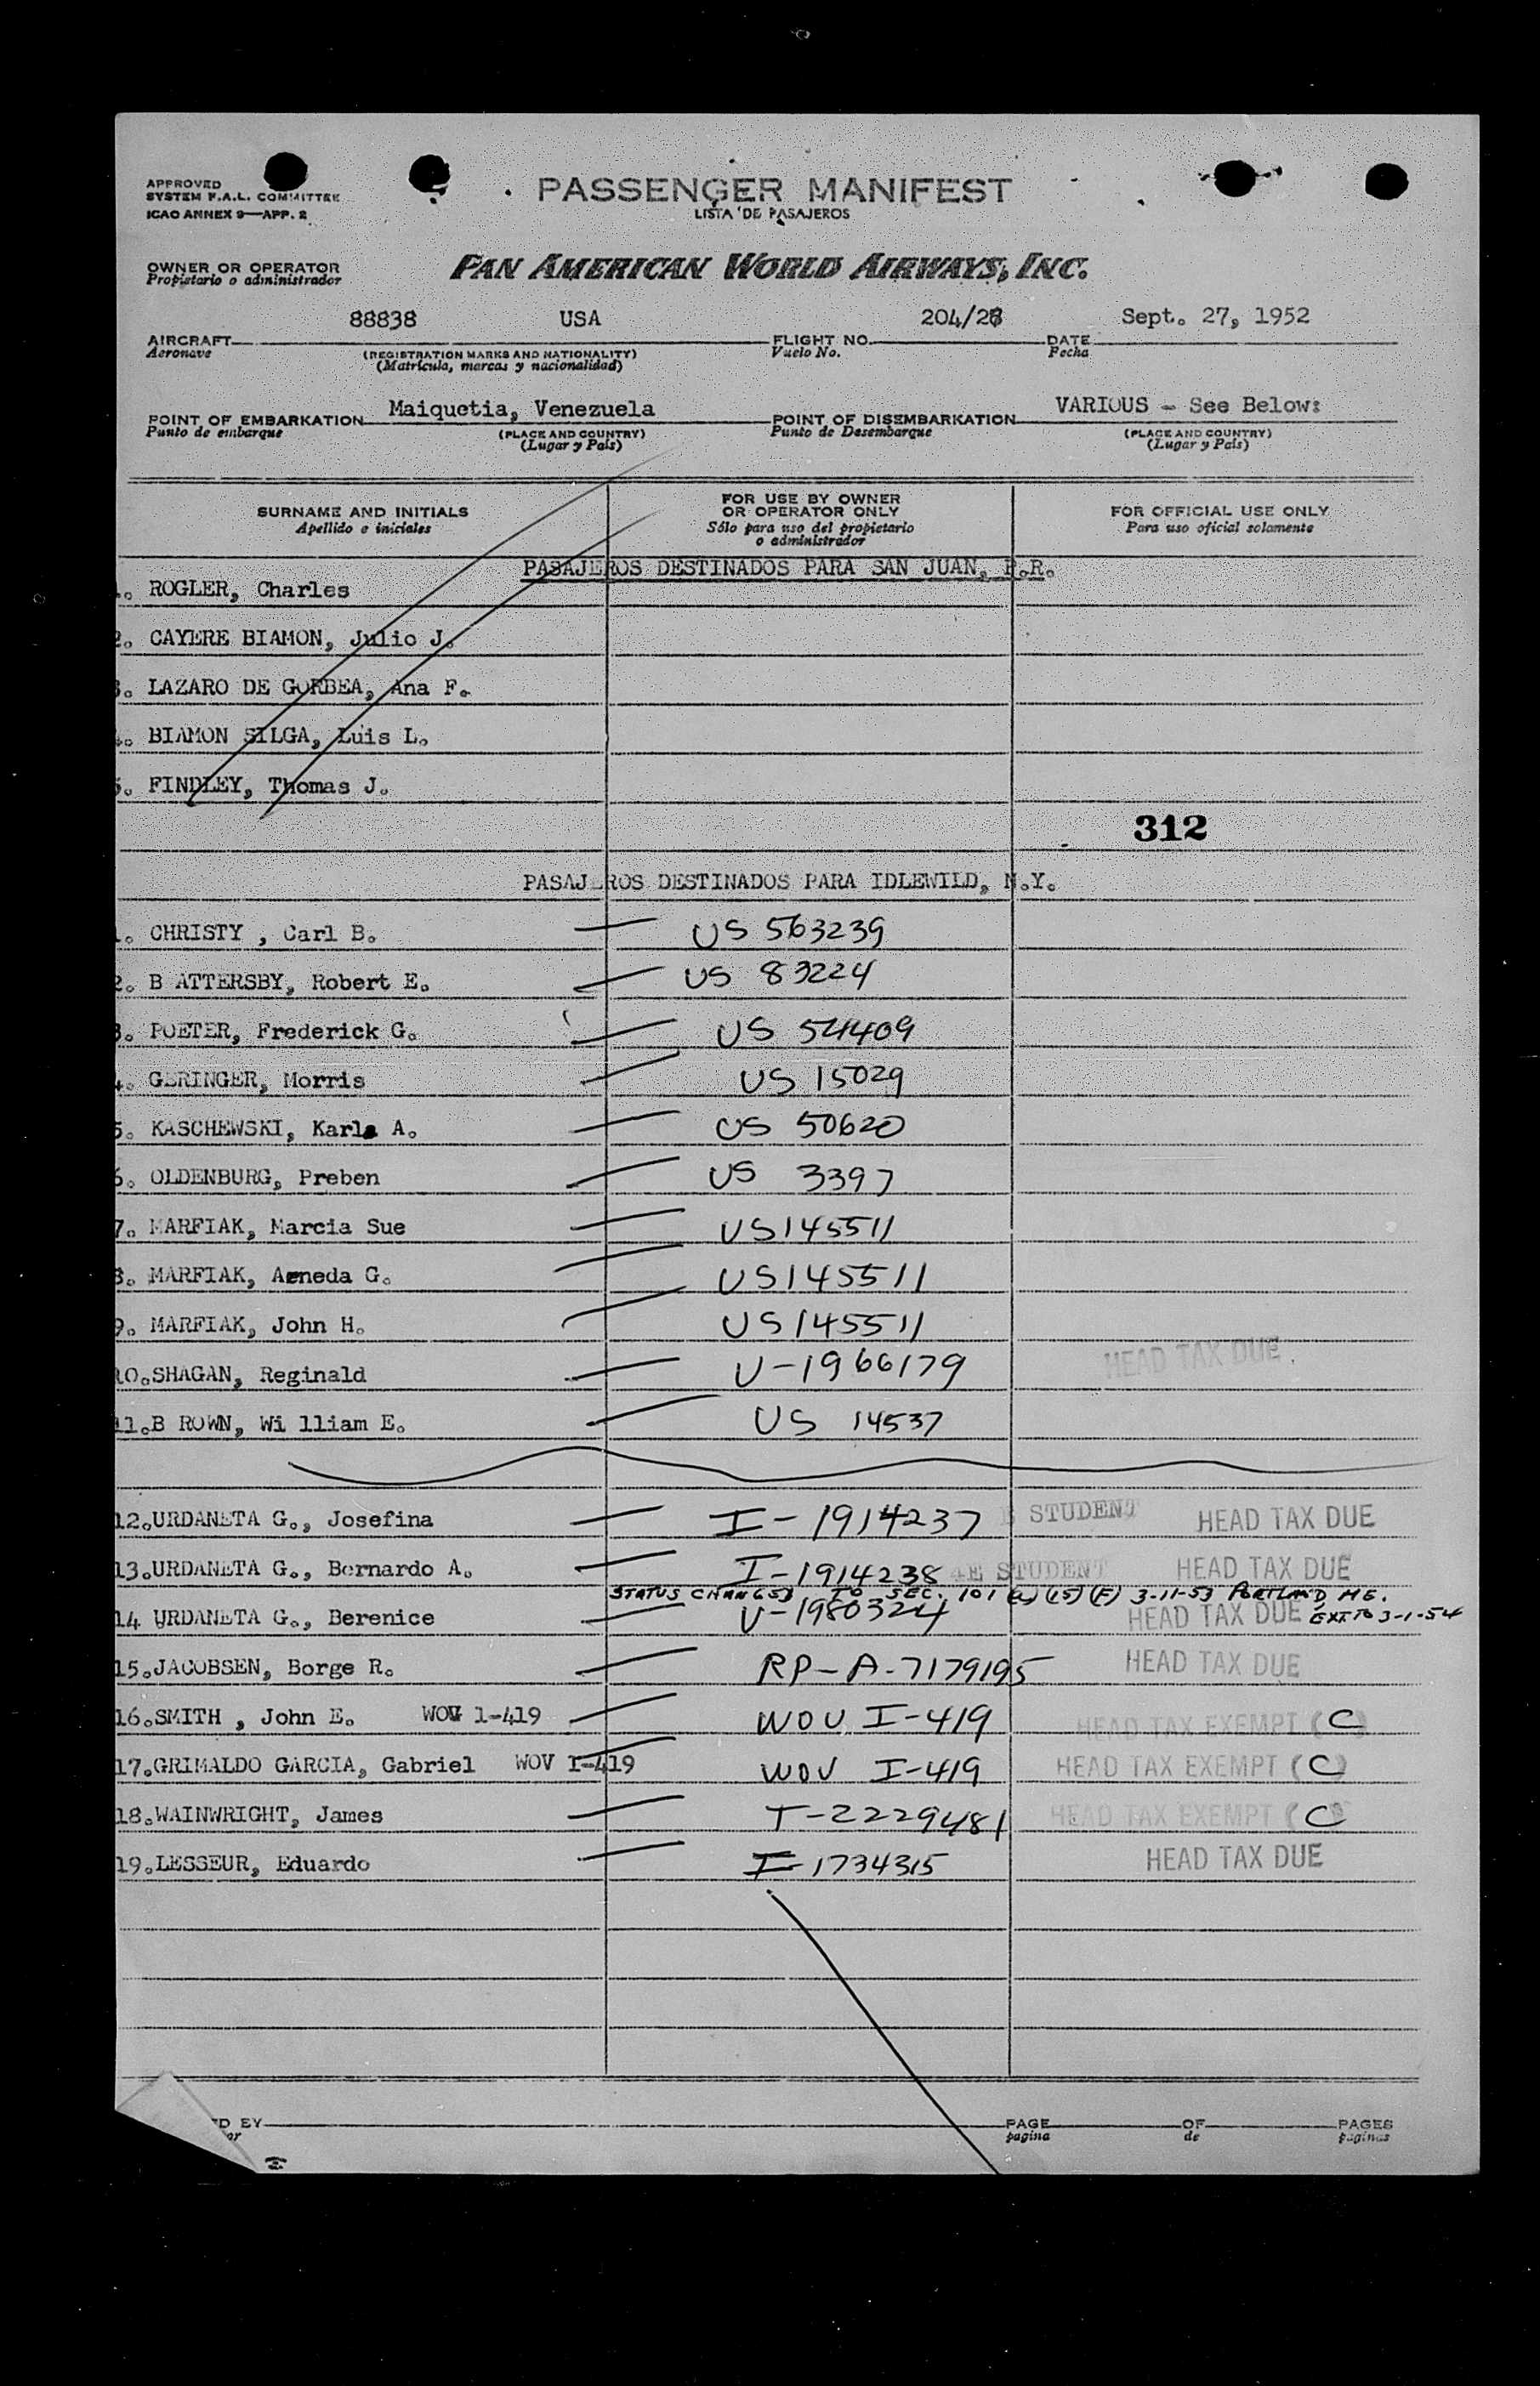 APPROVED
SYSTEM F.A.L. COMMITTEE
ICAO ANNEX 9—APP. 2
PASSENGER MANIFEST
LISTA DE PASAJEROS
OWNER OR OPERATOR
Propietario o administrador
PAN AMERICAN WORLD AIRWAYS, INC.
88838 USA 204/28 Sept. 27, 1952
AIRCRAFT FLIGHT NO. DATE
Aeronave (REGISTRATION MARKS AND NATIONALITY) Vuelo No. Fecha
(Matrícula, marcas y nacionalidad)
Maiquetia, Venezuela VARIOUS - See Below:
POINT OF EMBARKATION POINT OF DISEMBARKATION
Punto de embarque (PLACE AND COUNTRY) Punto de Desembarque (PLACE AND COUNTRY)
(Lugar y País) (Lugar y País)
SURNAME AND INITIALS FOR USE BY OWNER OR OPERATOR ONLY FOR OFFICIAL USE ONLY
Apellido e iniciales Sólo para uso del propietario o administrador Para uso oficial solamente
PASAJEROS DESTINADOS PARA SAN JUAN, P.R.
1. ROGLER, Charles
2. CAYERE BIAMON, Julio J.
3. LAZARO DE GORBEA, Ana F.
4. BIAMON SILGA, Luis L.
5. FINDLEY, Thomas J.
312
PASAJEROS DESTINADOS PARA IDLEWILD, N.Y.
1. CHRISTY , Carl B. US 563239
2. B ATTERSBY, Robert E. US 83224
3. POETER, Frederick G. US 54409
4. GERINGER, Morris US 15029
5. KASCHEWSKI, Karla A. US 50620
6. OLDENBURG, Preben US 3397
7. MARFIAK, Marcia Sue US145511
8. MARFIAK, Aeneda G. US145511
9. MARFIAK, John H. US145511
10.SHAGAN, Reginald V-1966179 HEAD TAX DUE
11.B ROWN, Wi lliam E. US 14537
12.URDANETA G., Josefina I-1914237 STUDENT HEAD TAX DUE
13.URDANETA G., Bernardo A. I-1914238 4E STUDENT HEAD TAX DUE
STATUS CHANGED TO SEC. 101 (a)(15)(F) 3-11-53 PORTLAND, ME.
14 URDANETA G., Berenice V-1980324 HEAD TAX DUE EXT. TO 3-1-54
15.JACOBSEN, Borge R. RP-A-7179195 HEAD TAX DUE
16.SMITH , John E. WOV 1-419 WOV I-419 HEAD TAX EXEMPT (C)
17.GRIMALDO GARCIA, Gabriel WOV I-419 WOV I-419 HEAD TAX EXEMPT (C)
18.WAINWRIGHT, James T-2229481 HEAD TAX EXEMPT (C)
19.LESSEUR, Eduardo I-1734315 HEAD TAX DUE
D BY PAGE OF PAGES
or pagina de paginas